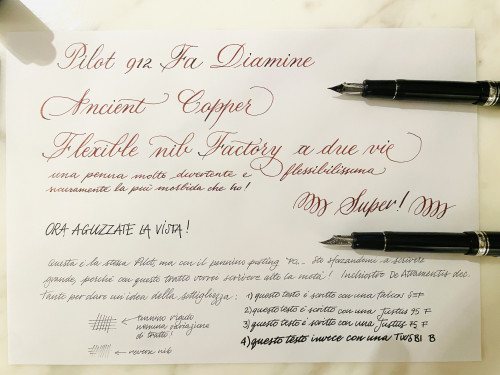 Pilot 912 Fa Diamine
Ancient Copper
Flexible nib Factory a due vie
una penna molto divertente e flessibilissima
sicuramente la più morbida che ho!
Super!
ORA AGUZZATE LA VISTA!
Questa è la stessa Pilot, ma con il pennino posting "PO". Sto sforzandomi a scrivere
grande, perché con questo tratto vorrei scrivere alte la metà! Inchiostro De Atramentis doc.
Tanto per dare un'idea della sottigliezza:
1) questo testo è scritto con una falcon SEF
2) questo testo è scritto con una Justus 95 F
3) questo testo è scritto con una Justus 95 F
4) questo testo invece con una TWSBI B
pennino rigido
nessuna variazione
di tratto!
reverse nib